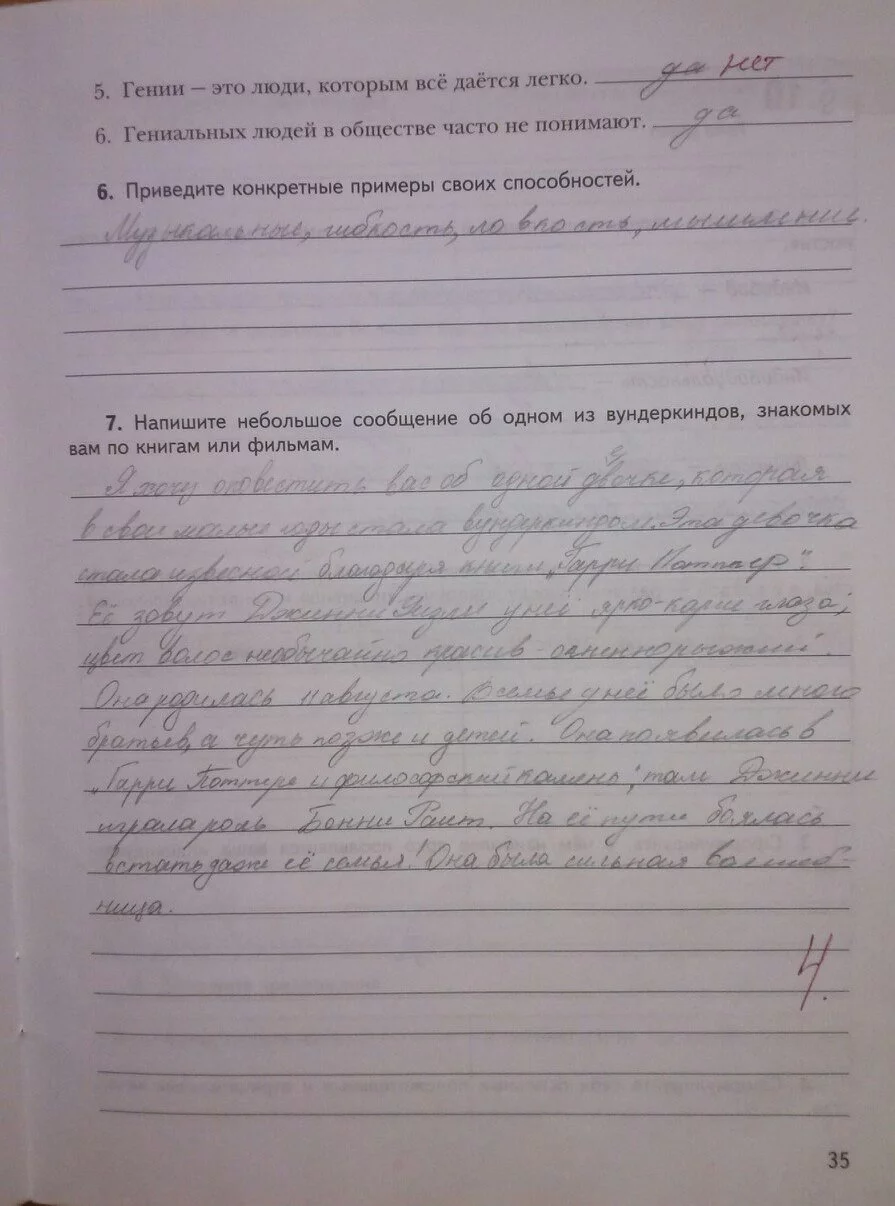 5. Гении – это люди, которым всё даётся легко. да нет
6. Гениальных людей в обществе часто не понимают. да
6. Приведите конкретные примеры своих способностей.
Музыкальные, гибкость, ловкость, мышление.
7. Напишите небольшое сообщение об одном из вундеркиндов, знакомых
вам по книгам или фильмам.
Я хочу оповестить вас об одной девочке, которая
в свои малые годы стала вундеркиндом. Эта девочка
стала извесной благодыря книги „Гарри Поттер".
Её зовут Джинни Уизли у неё ярко-карие глаза,
цвет волос необычайно красив - огненнорыжий.
Она родилась 11 августа. В семье у неё было много
братьев, а чуть позже и детей. Она появилась в
„Гарри Поттере и философский камень", там Джинни
играла роль Бонни Раит. На её пути боялась
встать даже её семья! Она была сильная волшеб-
ница.
4.
35